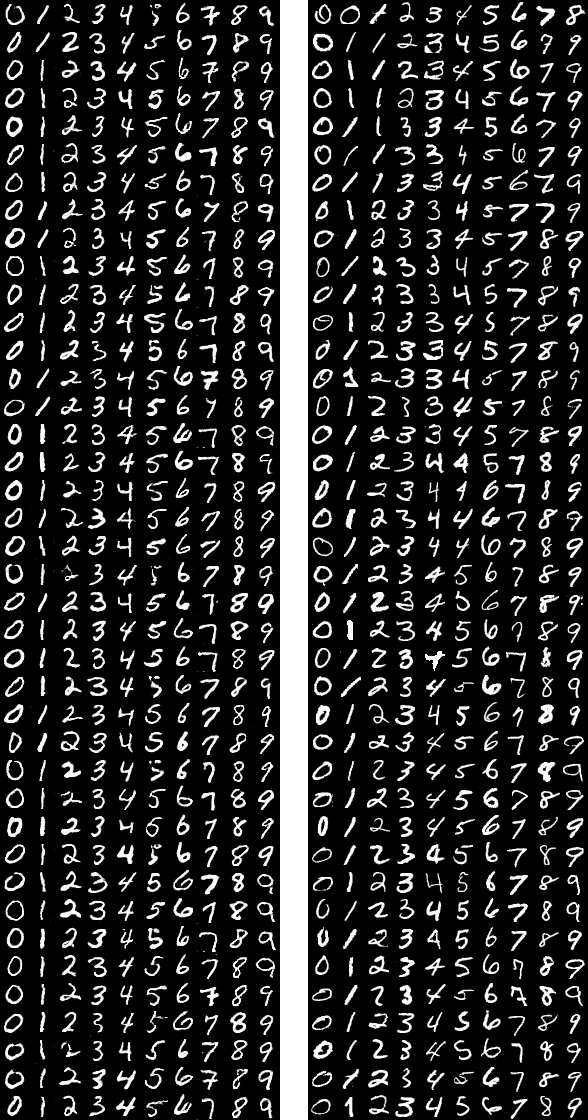 0 1 2 3 4 5 6 7 8 9
0 1 2 3 4 5 6 7 8 9
0 1 2 3 4 5 6 7 8 9
0 1 2 3 4 5 6 7 8 9
0 1 2 3 4 5 6 7 8 9
0 1 2 3 4 5 6 7 8 9
0 1 2 3 4 5 6 7 8 9
0 1 2 3 4 5 6 7 8 9
0 1 2 3 4 5 6 7 8 9
0 1 2 3 4 5 6 7 8 9
0 1 2 3 4 5 6 7 8 9
0 1 2 3 4 5 6 7 8 9
0 1 2 3 4 5 6 7 8 9
0 1 2 3 4 5 6 7 8 9
0 1 2 3 4 5 6 7 8 9
0 1 2 3 4 5 6 7 8 9
0 1 2 3 4 5 6 7 8 9
0 1 2 3 4 5 6 7 8 9
0 1 2 3 4 5 6 7 8 9
0 1 2 3 4 5 6 7 8 9
0 1 2 3 4 5 6 7 8 9
0 1 2 3 4 5 6 7 8 9
0 1 2 3 4 5 6 7 8 9
0 1 2 3 4 5 6 7 8 9
0 1 2 3 4 5 6 7 8 9
0 1 2 3 4 5 6 7 8 9
0 1 2 3 4 5 6 7 8 9
0 1 2 3 4 5 6 7 8 9
0 1 2 3 4 5 6 7 8 9
0 1 2 3 4 5 6 7 8 9
0 1 2 3 4 5 6 7 8 9
0 1 2 3 4 5 6 7 8 9
0 1 2 3 4 5 6 7 8 9
0 1 2 3 4 5 6 7 8 9
0 1 2 3 4 5 6 7 8 9
0 1 2 3 4 5 6 7 8 9
0 1 2 3 4 5 6 7 8 9
0 1 2 3 4 5 6 7 8 9
0 1 2 3 4 5 6 7 8 9
0 1 2 3 4 5 6 7 8 9
0 0 1 2 3 4 5 6 7 8
0 1 1 2 3 4 5 6 7 9
0 1 1 2 3 4 5 6 7 9
0 1 1 2 3 4 5 6 7 9
0 1 1 3 3 4 5 6 7 9
0 1 1 3 3 4 5 6 7 9
0 1 1 3 3 4 5 6 7 9
0 1 2 3 3 4 5 7 7 9
0 1 2 3 3 4 5 7 8 9
0 1 2 3 3 4 5 7 8 9
0 1 2 3 3 4 5 7 8 9
0 1 2 3 3 4 5 7 8 9
0 1 2 3 3 4 5 7 8 9
0 1 2 3 3 4 5 7 8 9
0 1 2 3 3 4 5 7 8 9
0 1 2 3 3 4 5 7 8 9
0 1 2 3 4 4 5 7 8 9
0 1 2 3 4 4 6 7 8 9
0 1 2 3 4 4 6 7 8 9
0 1 2 3 4 4 6 7 8 9
0 1 2 3 4 5 6 7 8 9
0 1 2 3 4 5 6 7 8 9
0 1 2 3 4 5 6 7 8 9
0 1 2 3 4 5 6 7 8 9
0 1 2 3 4 5 6 7 8 9
0 1 2 3 4 5 6 7 8 9
0 1 2 3 4 5 6 7 8 9
0 1 2 3 4 5 6 7 8 9
0 1 2 3 4 5 6 7 8 9
0 1 2 3 4 5 6 7 8 9
0 1 2 3 4 5 6 7 8 9
0 1 2 3 4 5 6 7 8 9
0 1 2 3 4 5 6 7 8 9
0 1 2 3 4 5 6 7 8 9
0 1 2 3 4 5 6 7 8 9
0 1 2 3 4 5 6 7 8 9
0 1 2 3 4 5 6 7 8 9
0 1 2 3 4 5 6 7 8 9
0 1 2 3 4 5 6 7 8 9
0 1 2 3 4 5 6 7 8 9